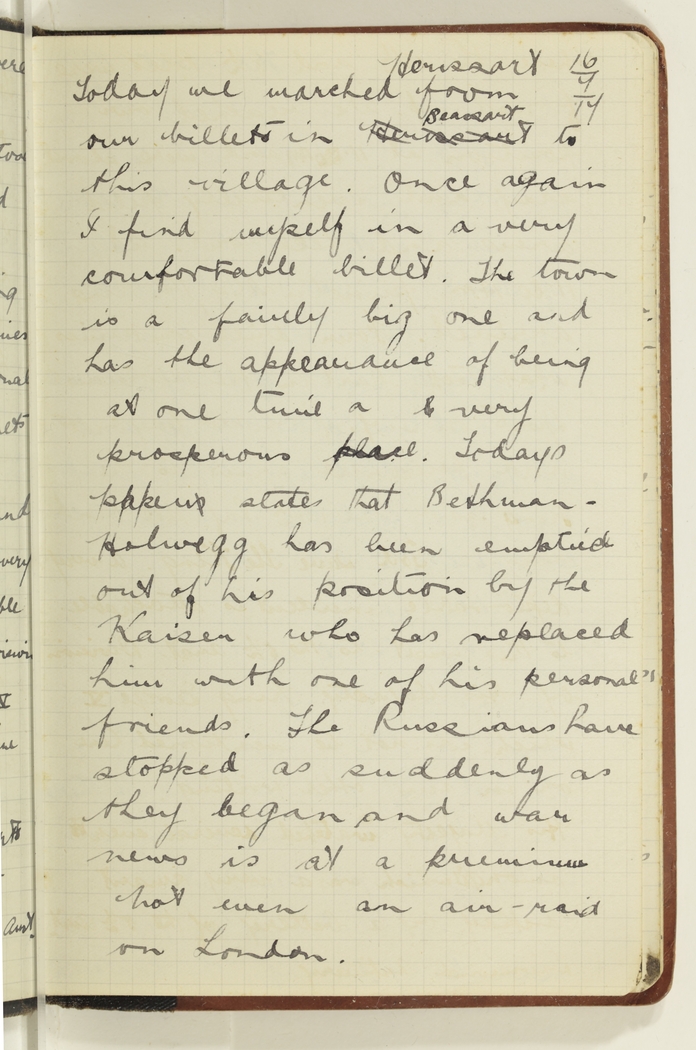 Herissart 16/7/17
Today we marched from
Beaosart
our billets in Herissart to
this village. Once again
I find myself in a very
comfortable billet. The town
is a fairly big one and
has the appearance of being
at one time a & very
prosperous place. Todays
papers states that Bethman-
Holwegg has been emptied
out of his position by the
Kaiser who has replaced
him with one of his personal
friends. The Russians have
stopped as suddenly as
they began and war
news is at a premium
not even an air-raid
on London.